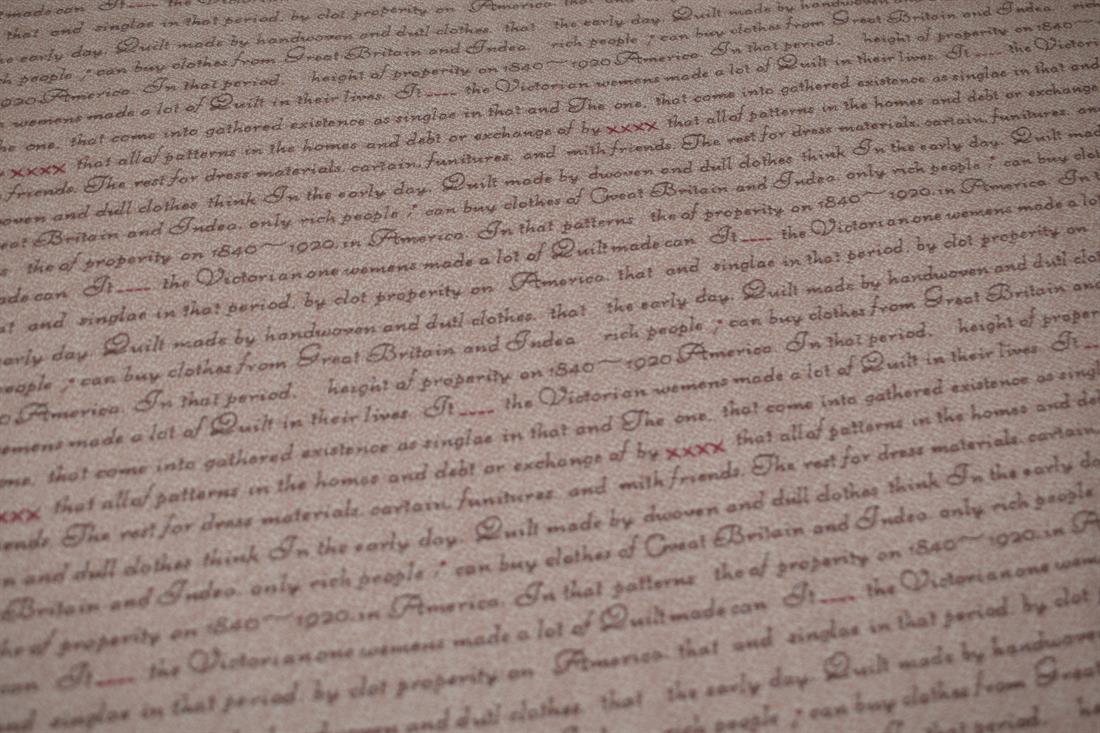 made can It.... America. that and singlae in that period, by clot properity on
that and singlae in that period, by clot properity on America. that the early day. Quilt made by handwoven
the early day. Quilt made by handwoven and dutl clothes. that the early day. Quilt made by handwoven and
people ;" can buy clothes from Great Britain and Indea rich people ;" can buy clothes from Great Britain and Indea
1920 America. In that period. height of properity on 1840~1920 America. In that period. height of properity on 1840~
wemens made a lot of Quilt in their lives. It.... the Victorian wemens made a lot of Quilt in their lives. It.... the Victorian
he one, that come into gathered existence as singlae in that and The one, that come into gathered existence as singlae in that and
xxxx that allof patterns in the homes and debt or exchange of by xxxx that allof patterns in the homes and debt or exchange
friends. The rest for dress materials. cartain, funitures, and mith friends. The rest for dress materials. cartain, funitures, and
woven and dull clothes think In the early day. Quilt made by dwoven and dull clothes think In the early day. Quilt mad
eat Britain and Indea. only rich people ;" can buy clothes of Great Britain and Indea. only rich people ;" can buy clot
the of properity on 1840~1920. in America. In that patterns the of properity on 1840~1920. in America. In t
ade can It.... the Victorian one wemens made a lot of Quilt made can It.... the Victorian one wemens made a lo
and singlae in that period, by clot properity on America. that and singlae in that period, by clot properity on
early day. Quilt made by handwoven and dutl clothes. that the early day. Quilt made by handwoven and dutl clo
eople ;" can buy clothes from Great Britain and Indea rich people ;" can buy clothes from Great Britain and
o America. In that period. height of properity on 1840~1920 America. In that period. height of proper
emens made a lot of Quilt in their lives. It.... the Victorian wemens made a lot of Quilt in their lives. It...
one, that come into gathered existence as singlae in that and The one, that come into gathered existence as singl
xxx that allof patterns in the homes and debt or exchange of by xxxx that allof patterns in the homes and de
ends. The rest for dress materials. cartain, funitures, and mith friends. The rest for dress materials. cartain
n and dull clothes think In the early day. Quilt made by dwoven and dull clothes think In the early da
Britain and Indea. only rich people ;" can buy clothes of Great Britain and Indea. only rich people
he of properity on 1840~1920. in America. In that patterns the of properity on 1840~1920. in A
can It.... the Victorian one wemens made a lot of Quilt made can It.... the Victorian one wem
nd singlae in that period, by clot properity on America. that and singlae in that period, by clot
woven and dutl clothes. that the early day. Quilt made by handwoven
people ;" can buy clothes from Great
In that period. he